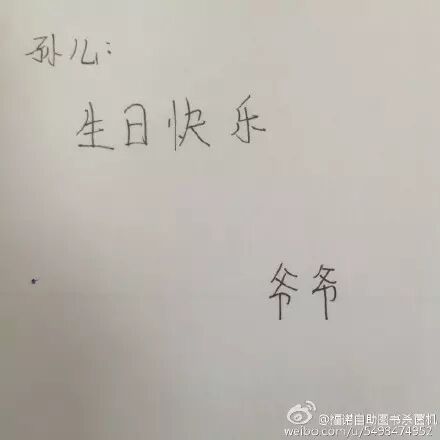 孙儿：
生日快乐
爷爷
@福诺自助图书杀菌机
weibo.com/u/5498474952